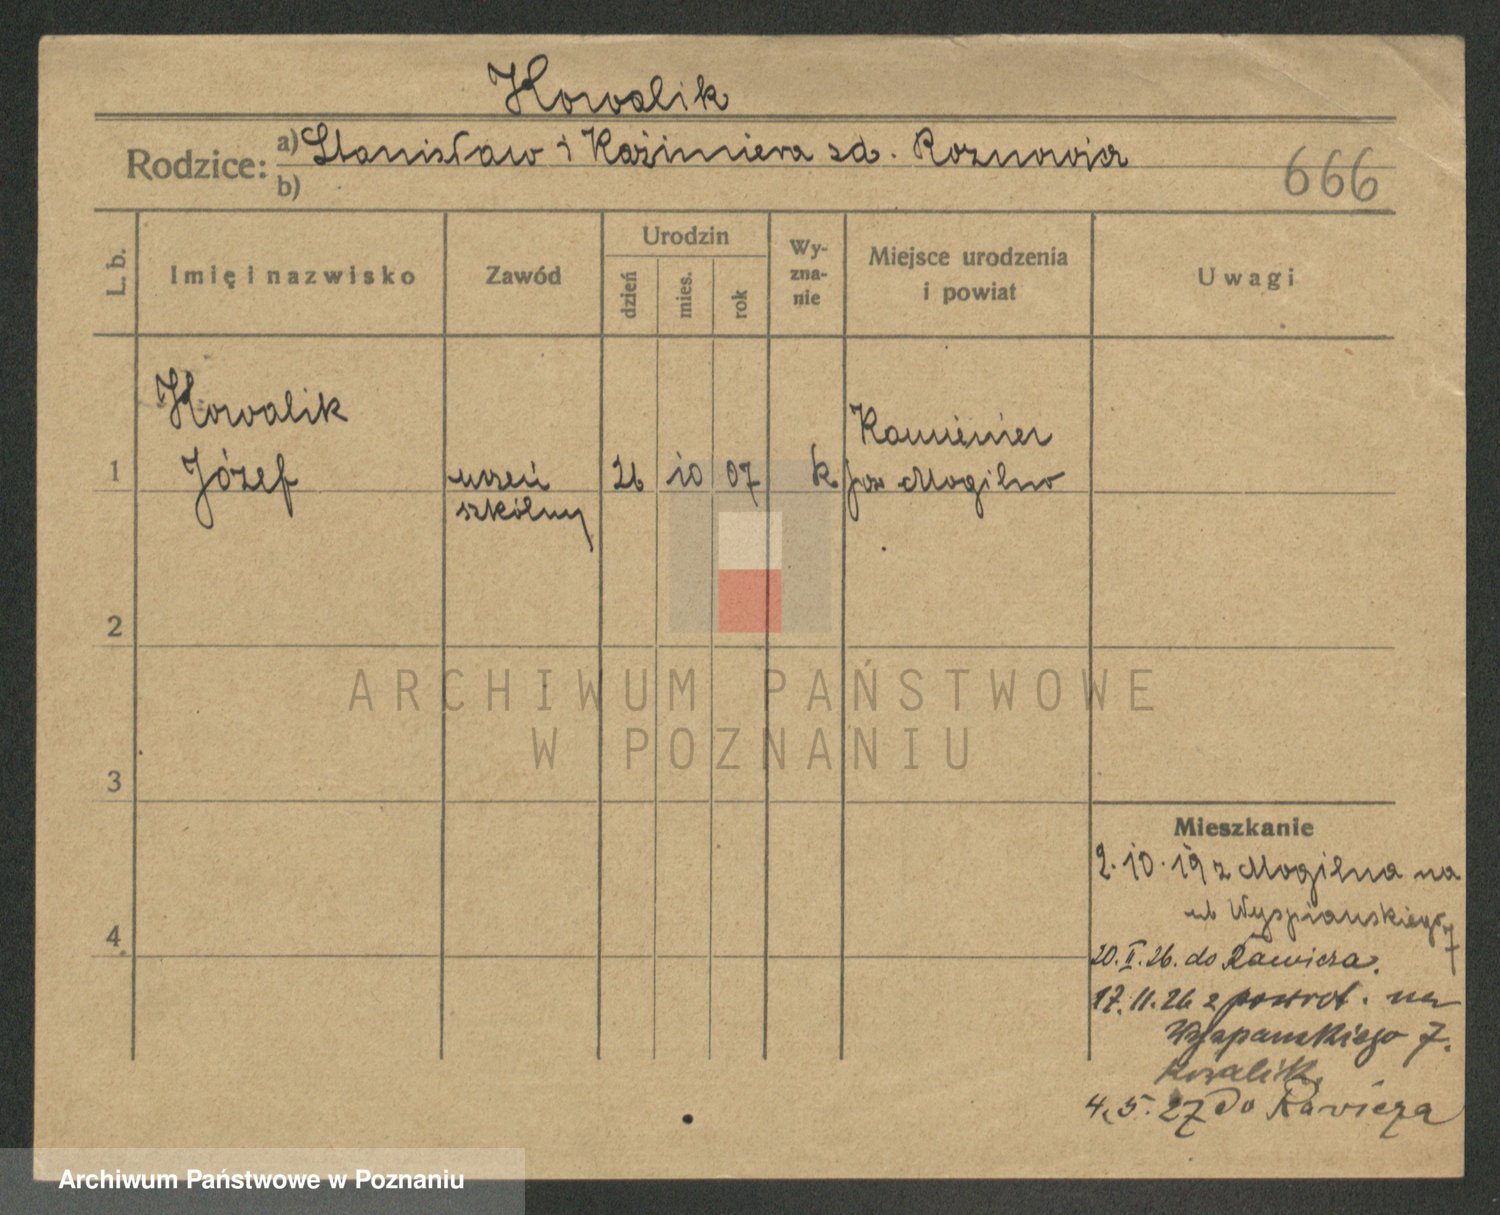 Kowalik
Rodzice: a) Stanisław i Kaźimiera zd. Roznowia
b)
666
L. b.
Imię i nazwisko
Zawód
Urodzin
dzień
mies.
rok
Wy-
zna-
nie
Miejsce urodzenia
i powiat
Uwagi
Kowalik
1 Józef
uczeń
szkólny
26 10 07
k
Kamieniec
pow Mogilno
2
3
4
Mieszkanie
2.10.19 z Mogilna na
ul. Wyspiańskiego 7
20.II.26. do Rawicza.
17.11.26 z powrot. na
Wyspańskiego 7.
Kowalik.
4.5.27 do Rawicza
ARCHIWUM PAŃSTWOWE
W POZNANIU
Archiwum Państwowe w Poznaniu